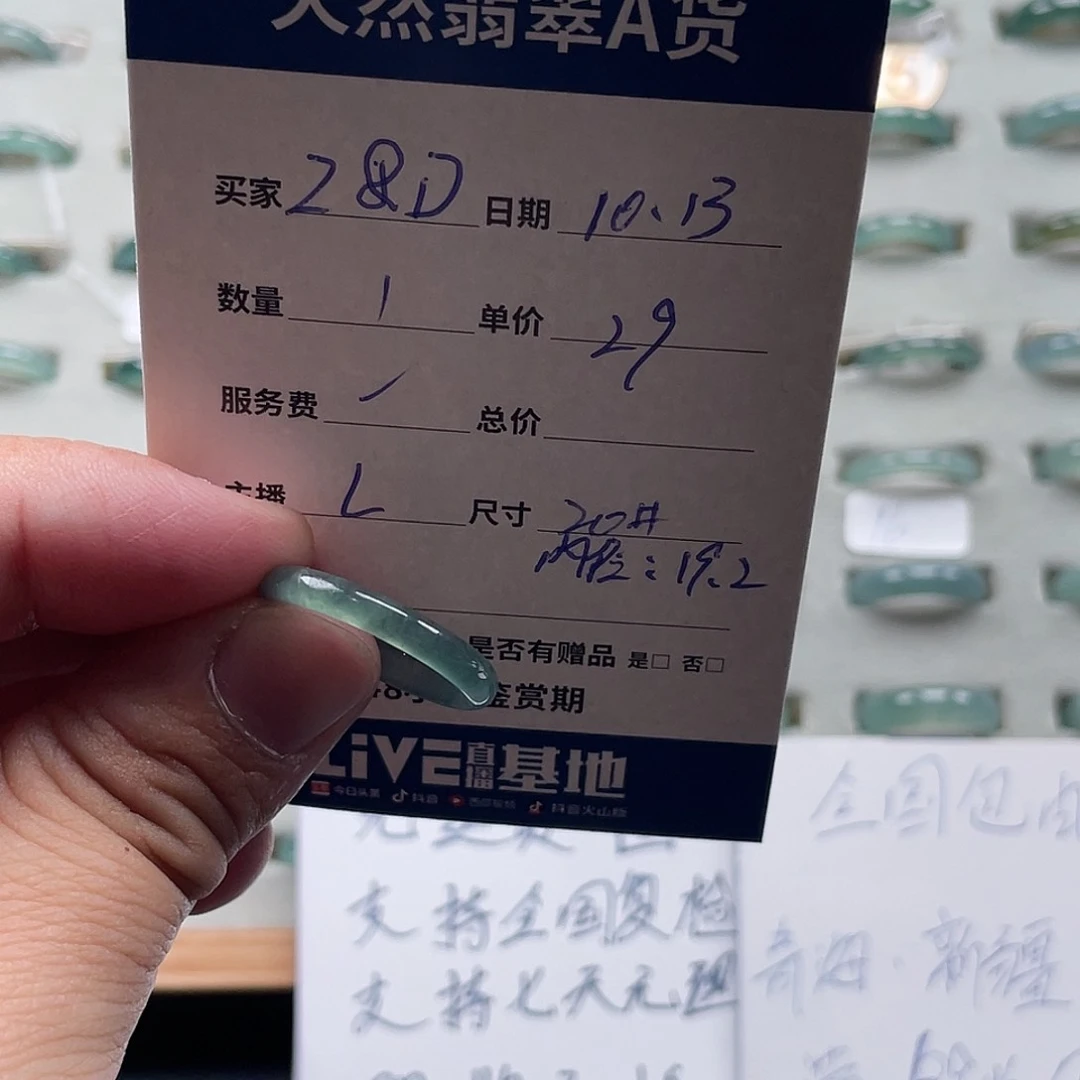 天然翡翠A货
买家 Z&D 日期 10.13
数量 1 单价 29
服务费 / 总价
主播 L 尺寸 20#
内径:19.2
是否有赠品 是□ 否□
鉴赏期
LiVE直播基地
今日头条 抖音 西瓜视频 抖音火山版
全国包邮
支持全国复检
青海·新疆
支持七天无理